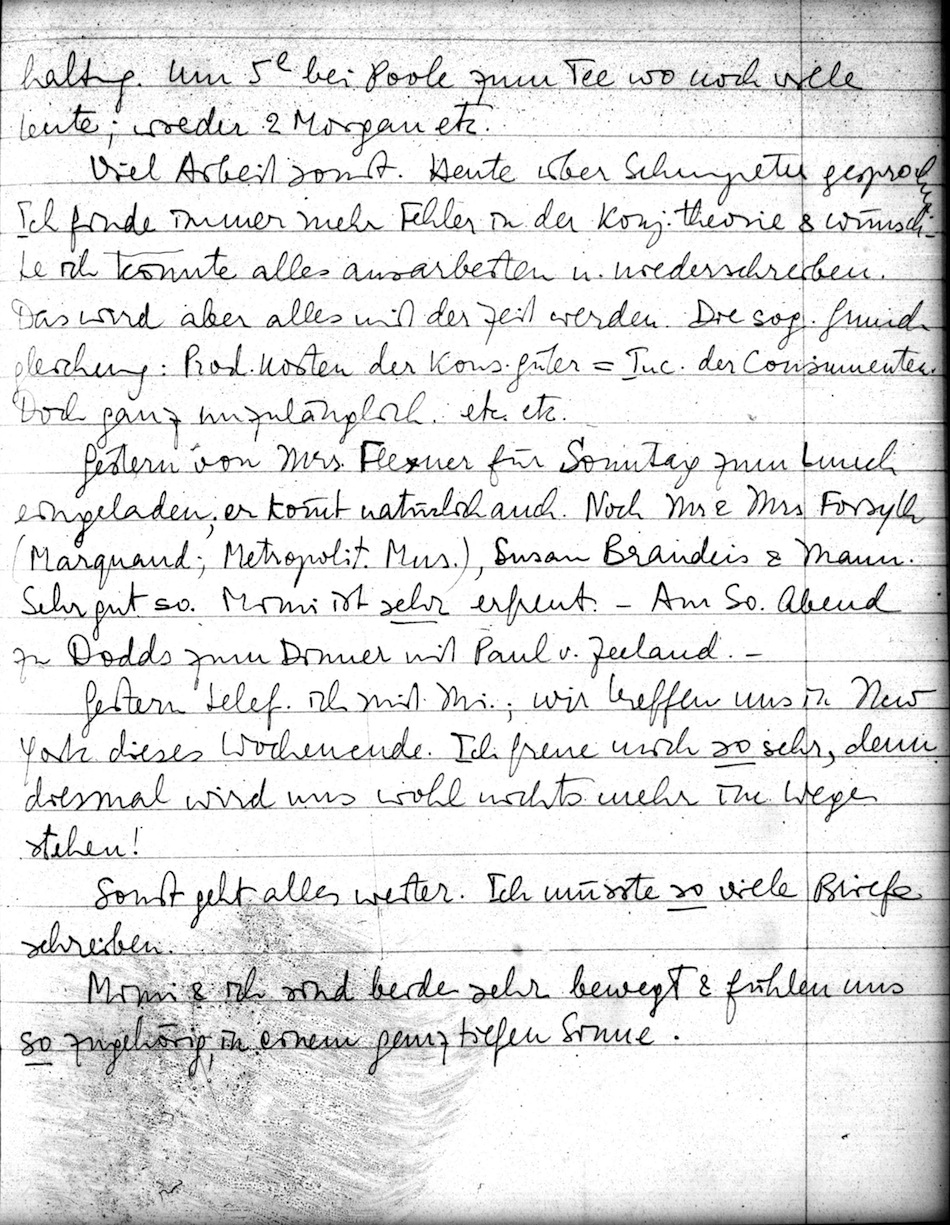 haltung. Um 5ʰ bei Poole zum Tee wo noch viele
Leute; wieder 2 Morgan etc.
Viel Arbeit sonst. Heute über Schumpeter gesproch.
Ich finde immer mehr Fehler in der Konj.theorie & wünsch-
te ich könnte alles ausarbeiten u. niederschreiben.
Das wird aber alles mit der Zeit werden. Die sog. Grund-
gleichung: Prod.kosten der Kons.güter = Inc. der Consumenten.
Doch ganz unzulänglich. etc. etc.
Gestern von Mrs. Flexner für Sonntag zum Lunch
eingeladen; er kom̅t natürlich auch. Noch Mr & Mrs Forsyth
(Marquand; Metropolit. Mus.), Susan Brandeis & Mann.
Sehr gut so. Mimi ist sehr erfreut. – Am So. Abend
zu Dodds zum Dinner mit Paul v. Zeeland. –
Gestern telef. ich mit Mi.; wir treffen uns in New
York dieses Wochenende. Ich freue mich so sehr, denn
diesmal wird uns wohl nichts mehr im Wege
stehen!
Sonst geht alles weiter. Ich müsste so viele Briefe
schreiben.
Mimi & ich sind beide sehr bewegt & fühlen uns
so zugehörig, in einem ganz tiefen Sinne.